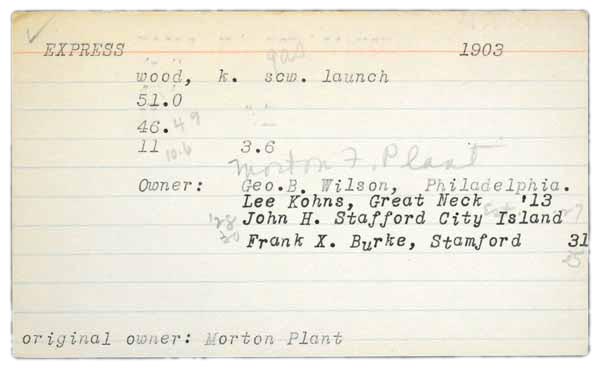 EXPRESS 1903
gas
wood, k. scw. launch
51.0
46.49
11 10.6 3.6
Morton F. Plant
Owner: Geo.B. Wilson, Philadelphia.
Lee Kohns, Great Neck '13
'28 John H. Stafford City Island 27
30 Frank X. Burke, Stamford 31
25
original owner: Morton Plant